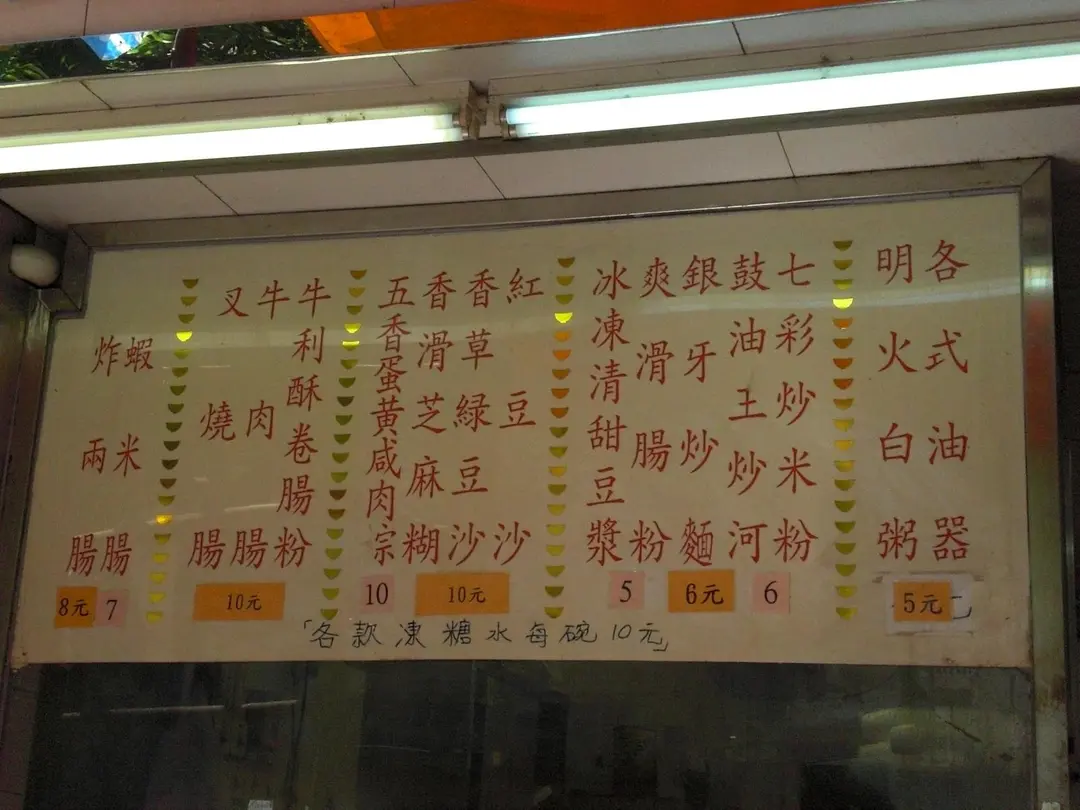 各式油器
明火白粥
5元
七彩炒米粉
鼓油王炒河
銀牙炒麵
爽滑腸粉
冰凍清甜豆漿
6
6元
5
紅豆沙
香草綠豆沙
香滑芝麻糊
五香蛋黃咸肉宗
10元
10
牛利酥卷腸粉
牛肉腸
叉燒腸
10元
蝦米腸
炸兩腸
7
8元
「各款凍糖水每碗10元」